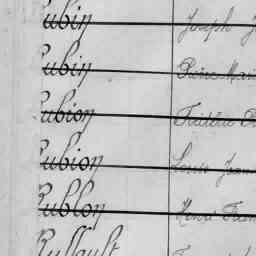 Rubin Joseph
Rubin Pierre Marie
Rubion Frédéric
Rubion Louis Jean
Rublon Henri Fran
Rullault